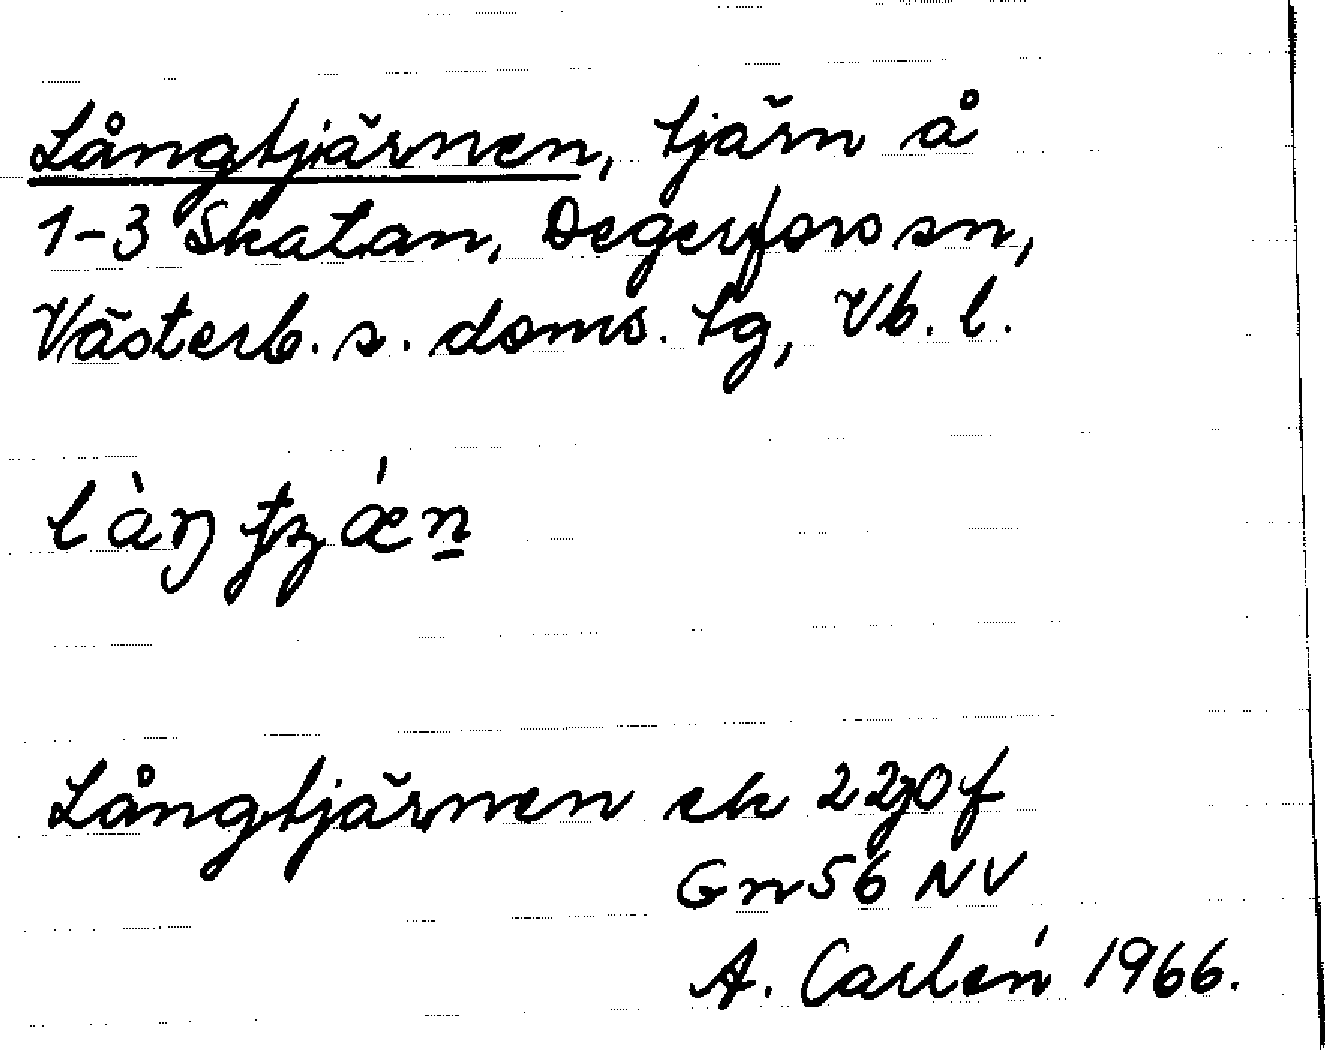 Långtjärnen, tjärn å
1-3 Skatan, Degerfors sn,
Västerb. s. doms. tg, Vb. l.
Långtjärnen ek 22j0f
Gn56 NV
A. Carlén 1966.